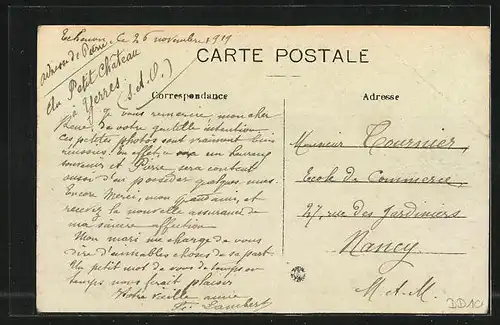 Echouen, le 26 novembre 1919
adresse de Pierre
du Petit Château
à Yerres. (S. et O.)
CARTE POSTALE
Correspondance
Je vous remercie mon cher
René de votre gentille intention
ces petites photos sont vraiment bien
réussies. En effet, un heureux
souvenir et Pierre sera content
aussi d'en posséder quelques unes.
Encore Merci, mon et
recevez la nouvelle assurance de
ma sincère affection
Mon mari me charge de vous
dire d'aimables choses de sa part.
Un petit mot de vous de temps en
temps nous ferait plaisir
Votre vieille amie
Lambert
Adresse
Monsieur Tournier,
Ecole de Commerce,
27, rue des Jardiniers
Nancy
M. et M.
DD10